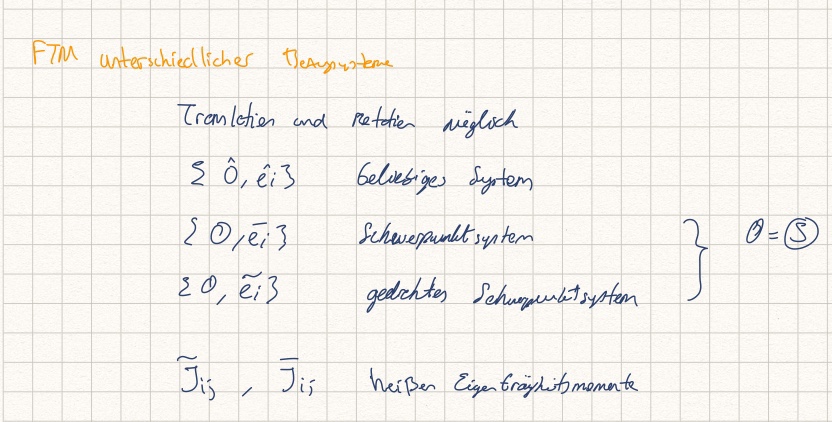 FTM unterschiedlicher Bezugssysteme
Translation und Rotation möglich
{ Ô, ê_i } beliebiges System
{ O, e̅_i } Schwerpunktsystem
{ O, ẽ_i } gedrehtes Schwerpunktsystem
} O = Ⓢ
J̃_ij , J̅_ij heißen Eigenträgheitsmomente